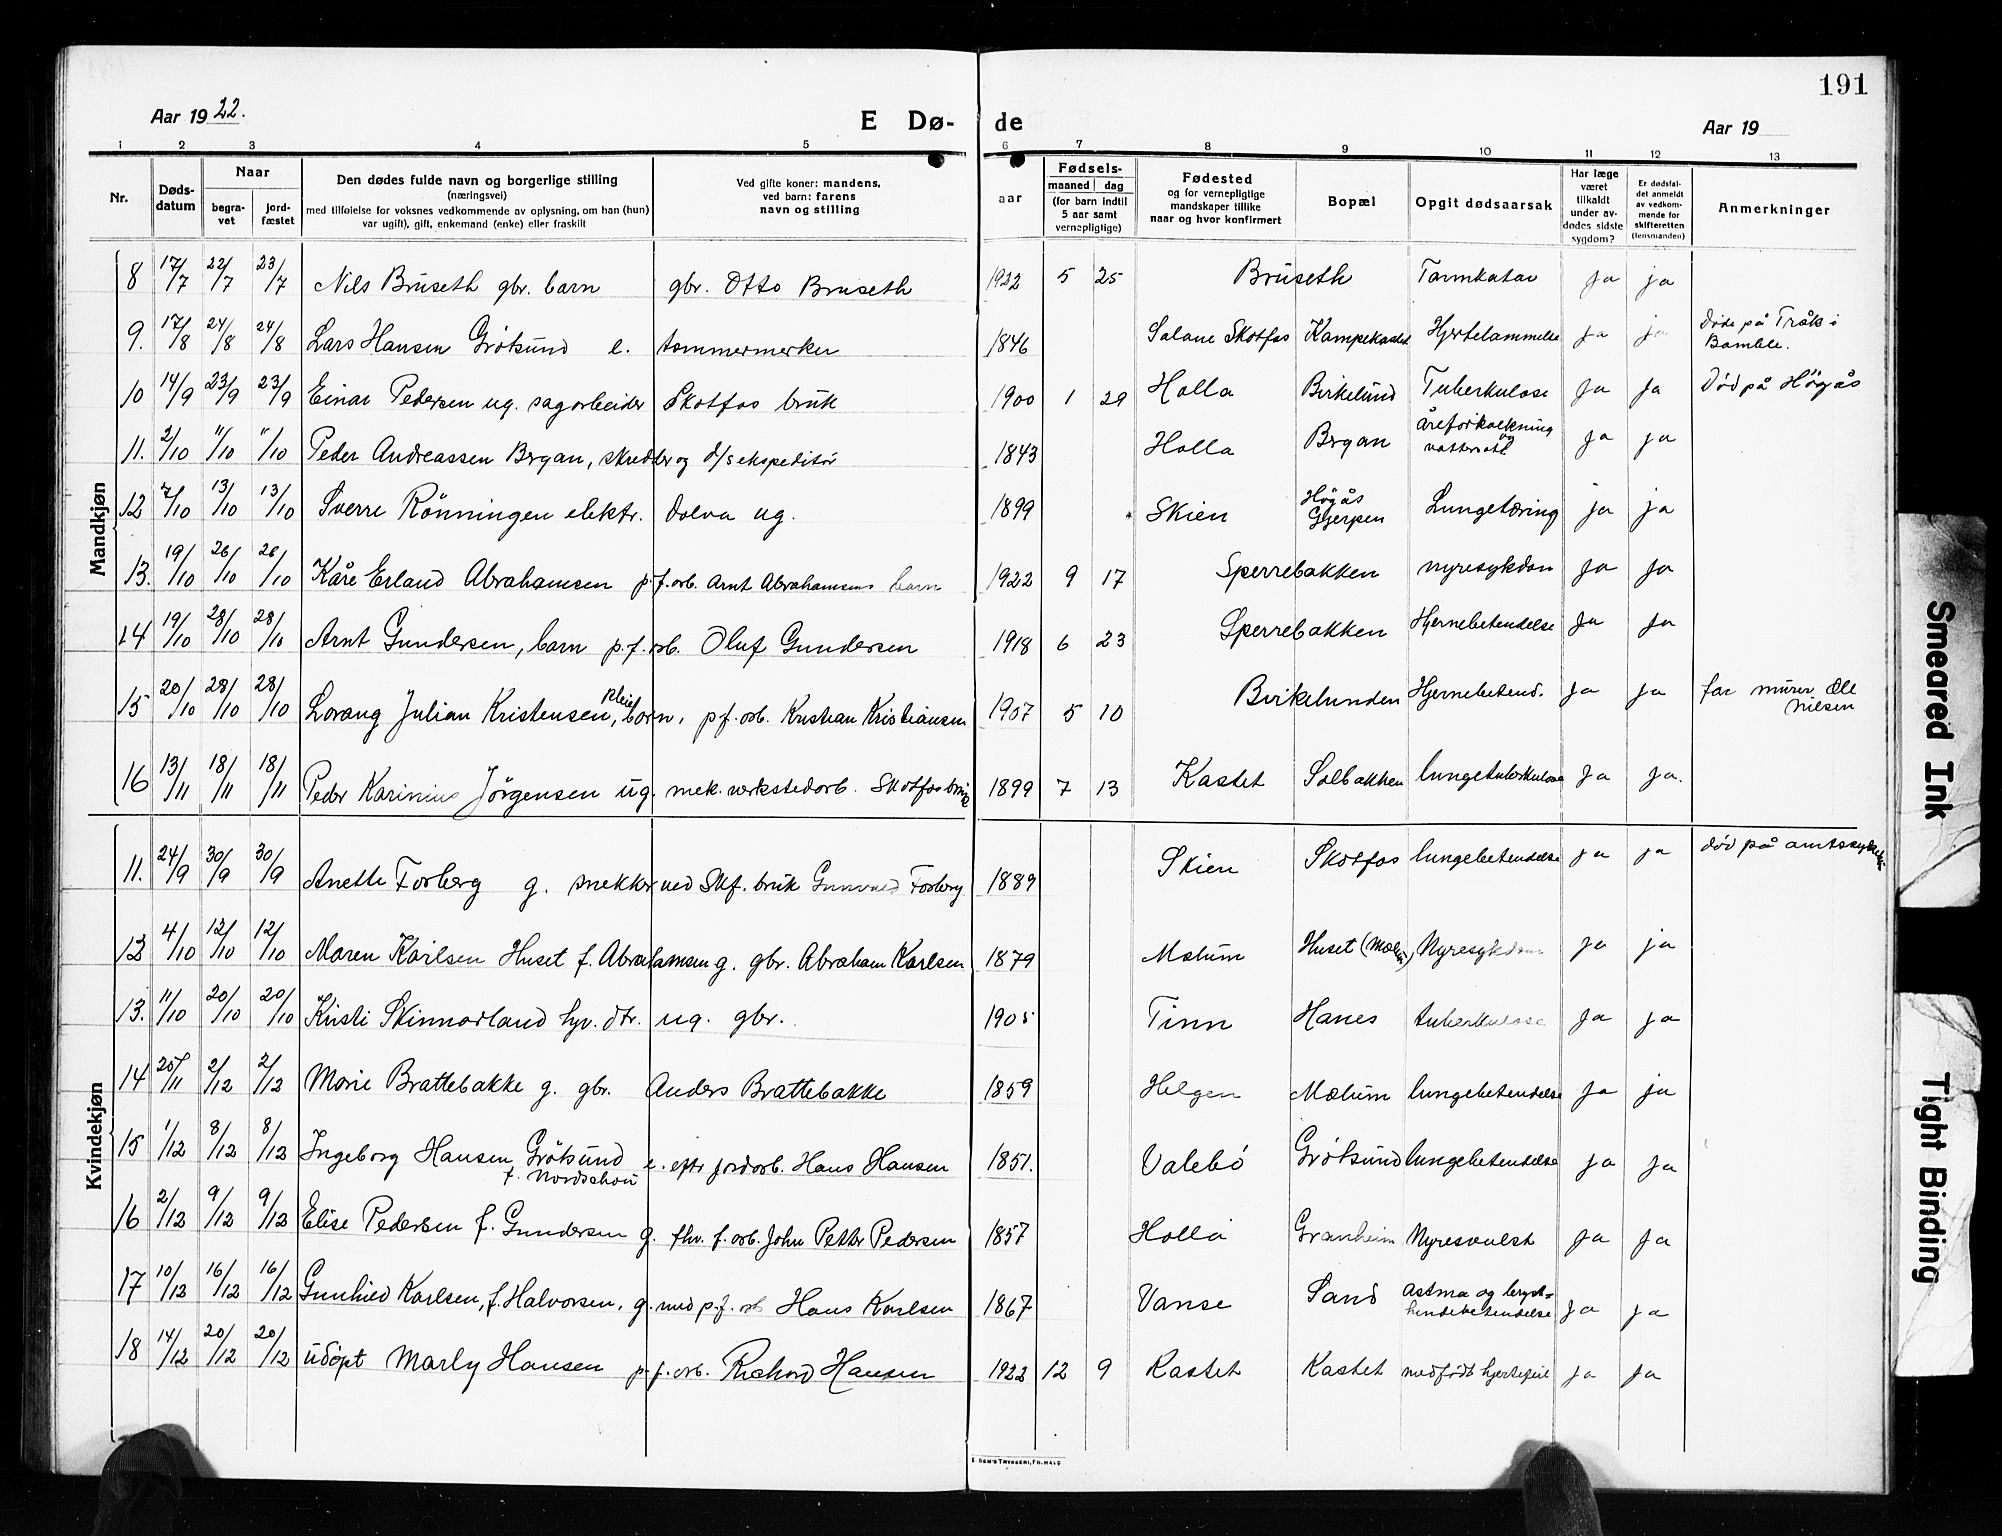 191
Aar 19 22.
E Dø-
de
Aar 19
1 2 3 4 5 6 7 8 9 10 11 12 13
Nr.
Døds-
datum
Naar
begra-
vet
jord-
fæstet
Den dødes fulde navn og borgerlige stilling
(næringsvei)
med tilføielse for voksnes vedkommende av oplysning, om han (hun)
var ugift), gift, enkemand (enke) eller fraskilt
Ved gifte koner: mandens,
ved barn: farens
navn og stilling
aar
Fødsels-
maaned dag
(for barn indtil
5 aar samt
vernepligtige)
Fødested
og for vernepligtige
mandskaper tillike
naar og hvor konfirmert
Bopæl
Opgit dødsaarsak
Har læge
været
tilkaldt
under av-
dødes sidste
sygdom?
Er dødsfal-
det anmeldt
av vedkom-
mende for
skifteretten
(lensmanden)
Anmerkninger
Mandkjøn
8 17/7 22/7 23/7 Nils Bruseth gbr. barn gbr. Otto Bruseth 1922 5 25 Bruseth Tarmkatar Ja ja
9. 17/8 24/8 24/8 Lars Hansen Grøtsund e. tømmermerker 1846 Solane Skotfos Kampekastet Hjertelammelse Ja ja Døde på Tråk i
Bamble.
10 14/9 23/9 23/9 Einar Pedersen ug. sagarbeider Skotfos bruk 1900 1 29 Holla Birkelund Tuberkulose Ja Ja Død på Høgås
11. 2/10 11/10 11/10 Peder Andreassen Bergan, skredder og d/s ekspeditør 1843 Holla Bergan åreforkalkning
og vattersott Ja ja
12 7/10 13/10 13/10 Sverre Rønningen elektr. Dolva ug. 1899 Skien Høgås
Gjerpen Lungetæring ja ja
13. 19/10 26/10 26/10 Kåre Erland Abrahamsen p.f. arb. Arnt Abrahamsens barn 1922 9 17 Sperrebakken nyresykdom Ja Ja
14 19/10 28/10 28/10 Arnt Gundersen, barn p.f. arb. Oluf Gundersen 1918 6 23 Sperrebakken Hjernebetendelse Ja Ja
15 20/10 28/10 28/10 Lorang Julian Kristensen, pleiebarn, p.f. arb. Kristian Kristiansen 1907 5 10 Birkelunden Hjernebetend. Ja Ja far murer Ole
Nielsen
16 13/11 18/11 18/11 Peder Karinius Jørgensen ug. mek. verkstedarb. Skotfos bruk 1899 7 13 Kastet Solbakken lungetuberkulose Ja Ja.
Kvindekjøn
11. 24/9 30/9 30/9 Anette Forberg g. snekker ved Skf. bruk Gunvald Forberg 1889 Skien Skotfos lungebetendelse Ja Ja død på amtssykehus
12 4/10 12/10 12/10 Maren Karlsen Huset f. Abrahamsen g. gbr. Abraham Karlsen 1879 Mælum Huset (Mælum) Nyresykdom Ja ja
13. 11/10 20/10 20/10 Kristi Skinnarland hyr. dtr. ug. gbr. 1905 Tinn Hanes tuberkulose Ja Ja
14 25/11 2/12 2/12 Marie Brattebakke g. gbr. Anders Brattebakke 1859 Helgen Mælum lungebetendelse Ja ja
15 1/12 8/12 8/12 Ingeborg Hansen Grøtsund e. efter jordarb. Hans Hansen 1851. Valebø Grøtsund lungebetendelse Ja Ja
16 2/12 9/12 9/12 Elise Pedersen f. Gundersen g. fhv. f. arb. John Petter Pedersen 1857 Holla Granheim Nyresvulst Ja Ja
17 10/12 16/12 16/12 Gunhild Karlsen, f. Halvorsen, g. med p.f. arb Hans Karlsen 1867 Vanse Sand astma og bryst-
hindebetendelse Ja Ja
18 14/12 20/12 20/12 udøpt Marly Hansen p.f. arb. Rickard Hansen 1922 12 9 Kastet Kastet medfødt hjertefeil Ja Ja
Smeared Ink
Tight Binding